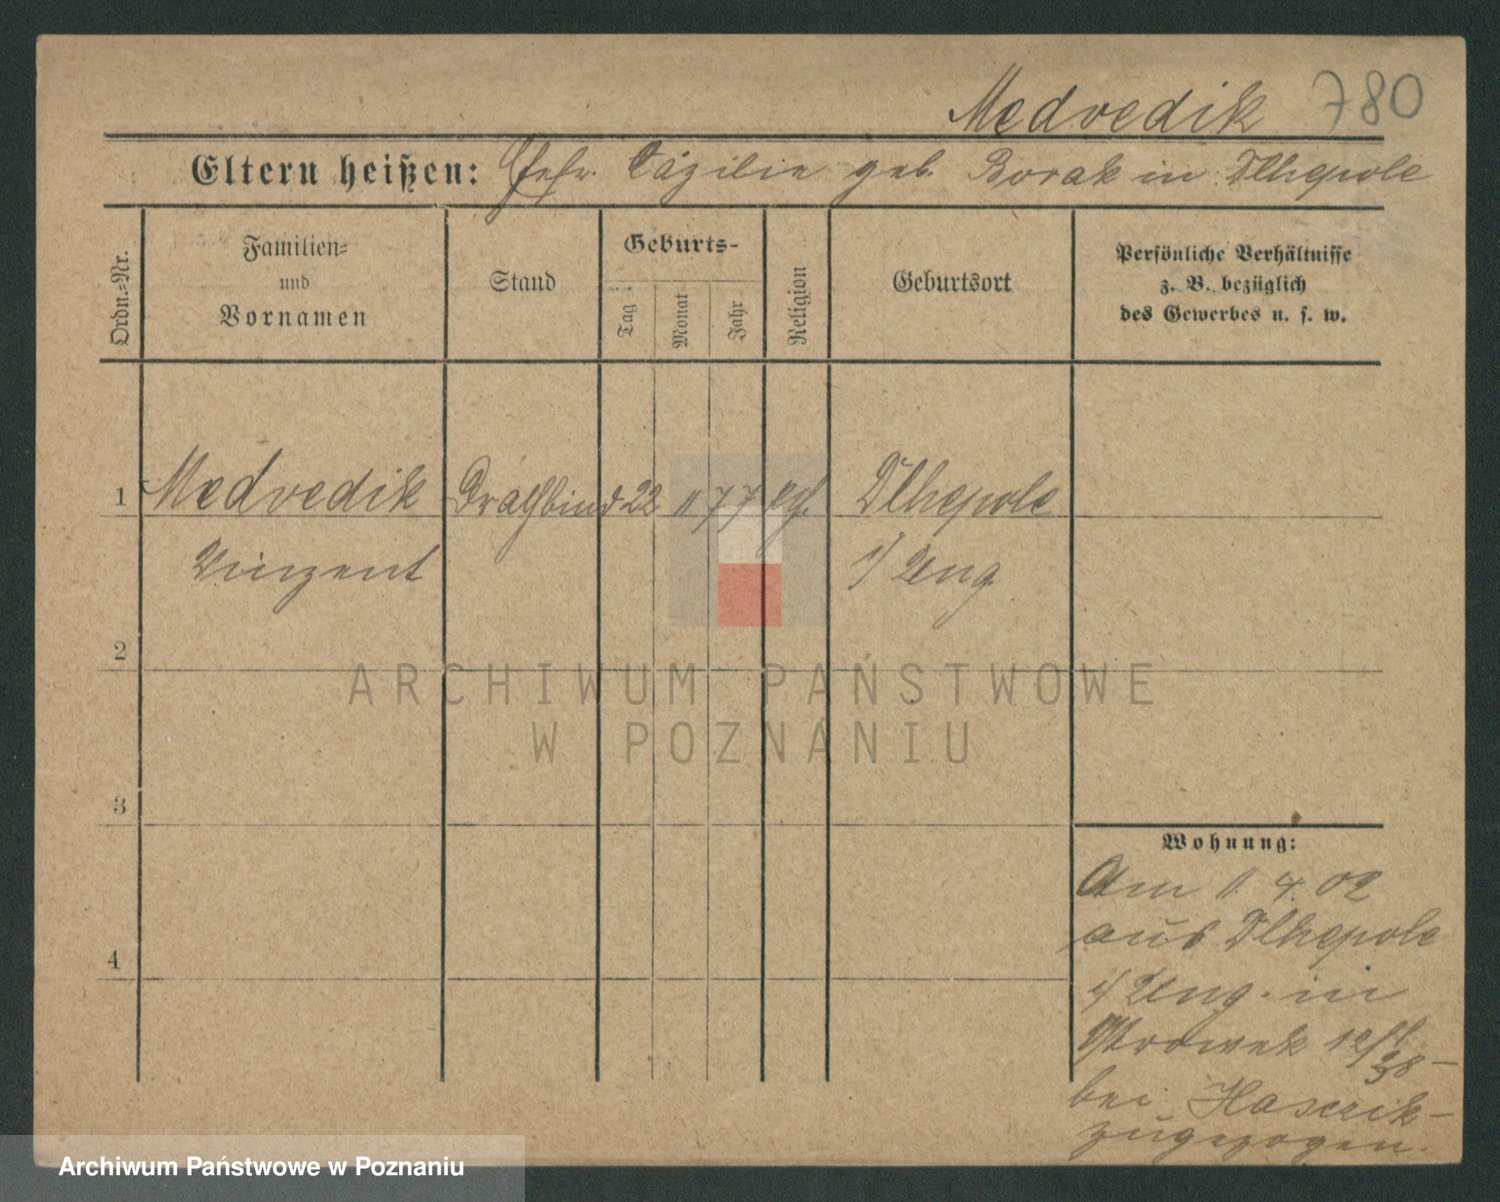 Medvedik 780
Eltern heißen: Ehefr. Cäzilie geb. Borak in Dlhepole
Ordn.-Nr.
Familien-
und
Vornamen
Stand
Geburts-
Tag
Monat
Jahr
Religion
Geburtsort
Persönliche Verhältnisse
z. B. bezüglich
des Gewerbes u. s. w.
1 Medvedik Drahtbind 22 11 77 kth. Dlhepole
Vinzent i/ Ung.
2
ARCHIWUM PAŃSTWOWE
W POZNANIU
3
Wohnung:
Am 1. 4. 02
aus Dlhepole
4
i/ Ung. in
Ostrowek 12/
bei
zugezogen.
Archiwum Państwowe w Poznaniu